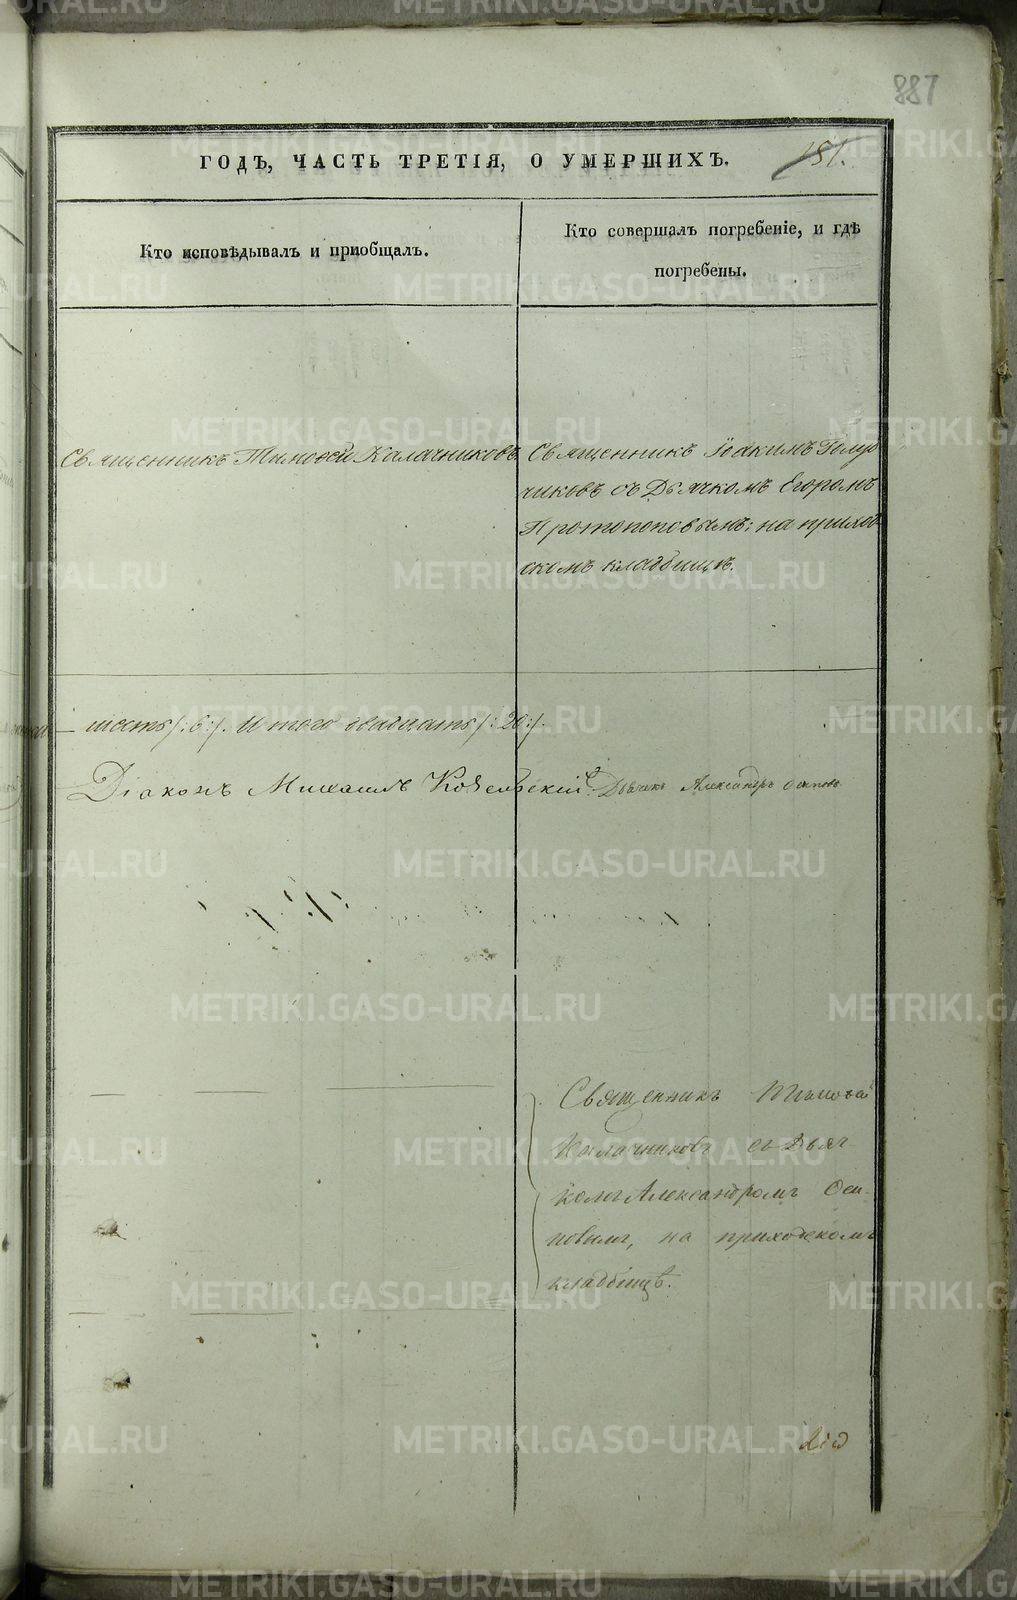 887
ГОДЪ, ЧАСТЬ ТРЕТІЯ, О УМЕРШИХЪ.
151.
Кто исповѣдывалъ и приобщалъ.
Кто совершалъ погребеніе, и гдѣ
погребены.
Священникъ Тимоѳей Калачниковъ.
Священникъ Іоакимъ Голуб
чиковъ съ Дьячкомъ Егоромъ
Протопоповымъ; на приход
скомъ кладбищѣ.
шесть /:6:/. И того двадцать /:20:/.
Діаконъ Михаилъ Козельскій.
Дьячекъ Александръ Осиповъ
Священникъ Тимоѳей
Калачниковъ съ Дьяч
комъ Александромъ Оси-
повымъ, на приходскомъ
кладбищѣ.
METRIKI.GASO-URAL.RU